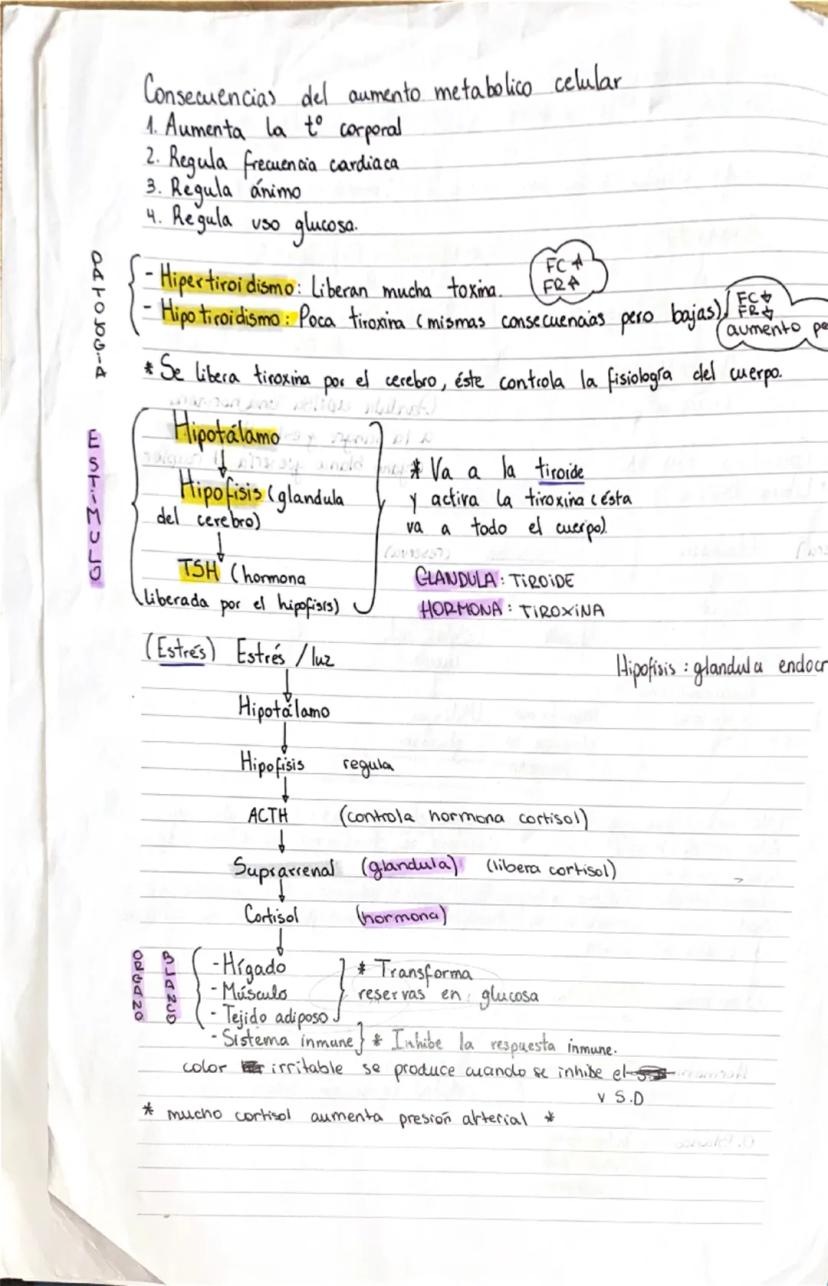 Consecuencias del aumento metabolico celular
1. Aumenta la t° corporal
2. Regula frecuencia cardiaca
3. Regula ánimo
4. Regula uso glucosa.
PATOLOGIA
- Hipertiroidismo: Liberan mucha toxina.
FC ↑
FR ↑
- Hipotiroidismo: Poca tiroxina (mismas consecuencias pero bajas)
FC ↓
FR ↓
aumento pe
* Se libera tiroxina por el cerebro, éste controla la fisiología del cuerpo.
ESTÍMULO
Hipotálamo
↓
Hipofisis (glandula
del cerebro)
↓
TSH (hormona
liberada por el hipofisis)
* Va a la tiroide
y activa la tiroxina (ésta
va a todo el cuerpo)
GLANDULA: TIROIDE
HORMONA: TIROXINA
(Estrés) Estrés / luz
Hipofisis: glandula endocr
↓
Hipotálamo
↓
Hipofisis regula
↓
ACTH (controla hormona cortisol)
↓
Suprarrenal (glandula) (libera cortisol)
↓
Cortisol (hormona)
↓
ORGANO BLANCO
- Hígado
- Músculo
- Tejido adiposo
* Transforma
reservas en glucosa
- Sistema inmune} * Inhibe la respuesta inmune.
color irritable se produce cuando se inhibe el
v S.D
* mucho cortisol aumenta presión arterial *